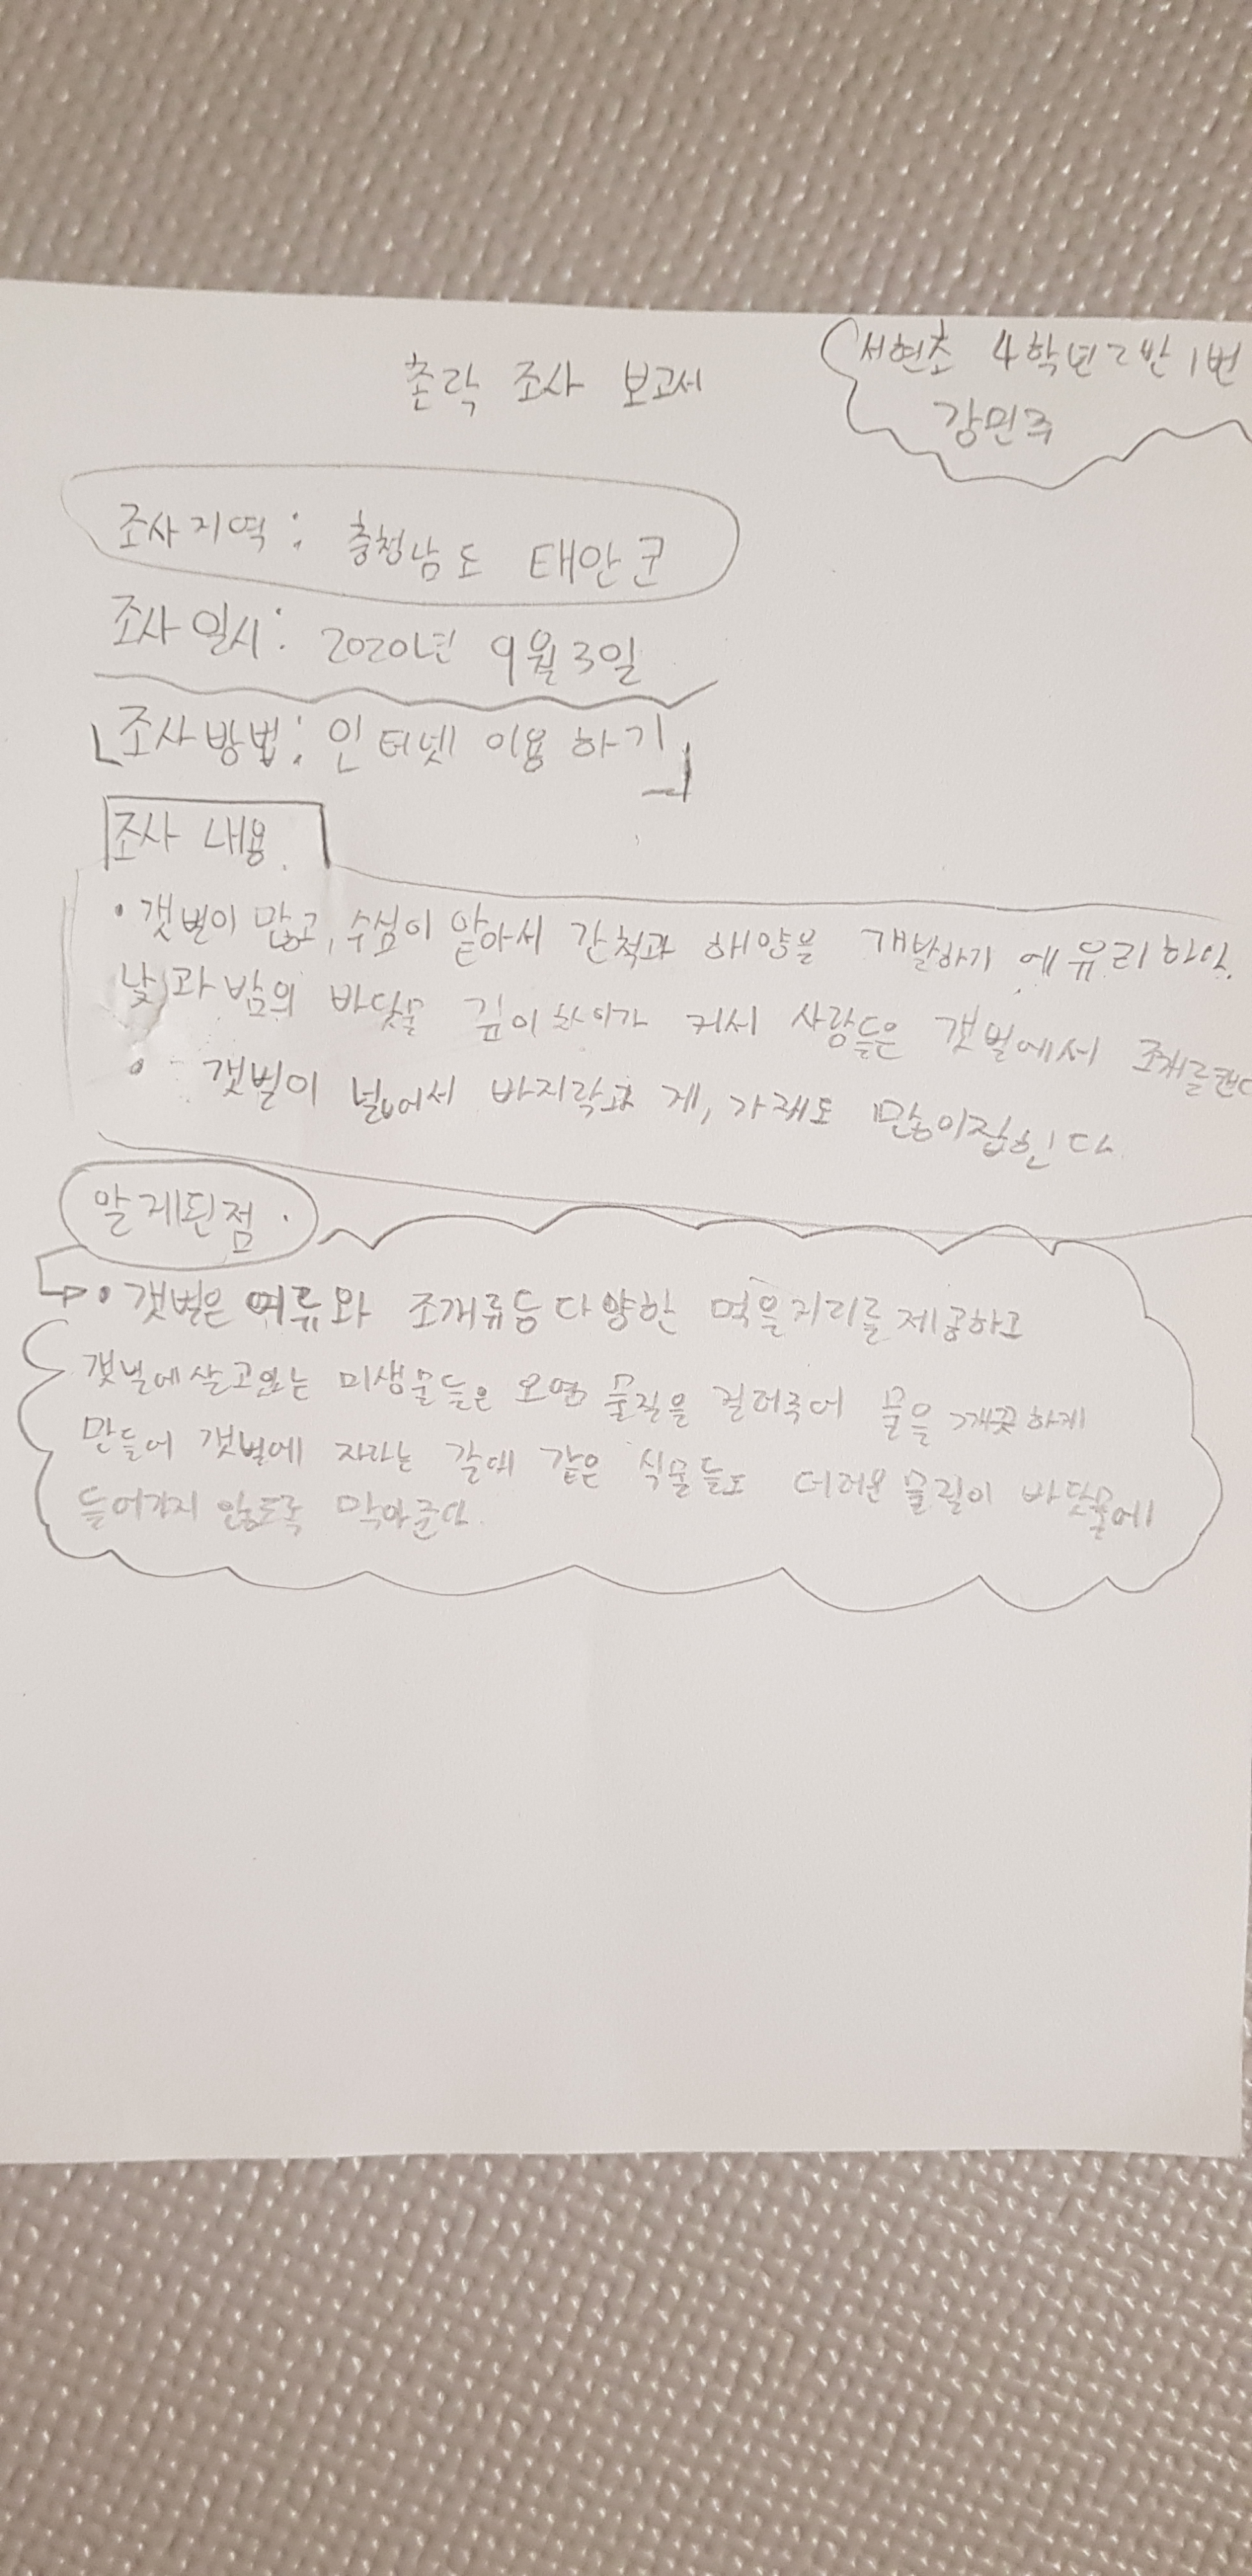 촌락 조사 보고서
서현초 4학년 2반 1번
강민주
조사지역: 충청남도 태안군
조사 일시: 2020년 9월 3일
조사방법: 인터넷 이용 하기
조사 내용.
• 갯벌이 많고, 수심이 얕아서 간척과 해양을 개발하기에 유리하다.
낮과 밤의 바닷물 깊이 차이가 커서 사람들은 갯벌에서 조개를 캔다
• 갯벌이 넓어서 바지락과 게, 가래도 많이 잡힌다.
알게된점.
• 갯벌은 어류와 조개류등 다양한 먹을거리를 제공하고
갯벌에 살고있는 미생물들은 오염 물질을 걸러주어 물을 깨끗하게
만들어 갯벌에 자라는 갈대 같은 식물들도 더러운 물질이 바닷물에
들어가지 않도록 막아준다.